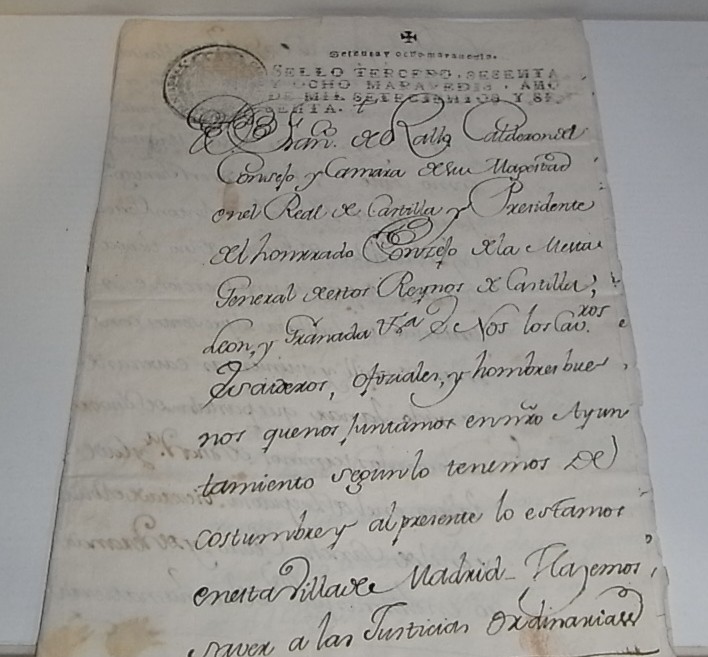 Sesenta y ocho maravedis.
SELLO TERCERO, SESENTA
Y OCHO MARAVEDIS, AÑO
DE MIL SETECIENTOS Y SE
SENTA.
Dn Fran.co de Calderon del
Consejo y Camara de su Magestad
en el Real de Castilla y Presidente
del honrrado Conzejo de la Mesta
General de estos Reynos de Castilla,
Leon, y Granada Nos los Cav.ros
Escuderos, ofiziales, y hombres bue
nos que nos juntamos en nro Ayun
tamiento segun lo tenemos De
costumbre y al presente lo estamos
en esta Villa de Madrid Hazemos
saver a las Justicias Ordinarias